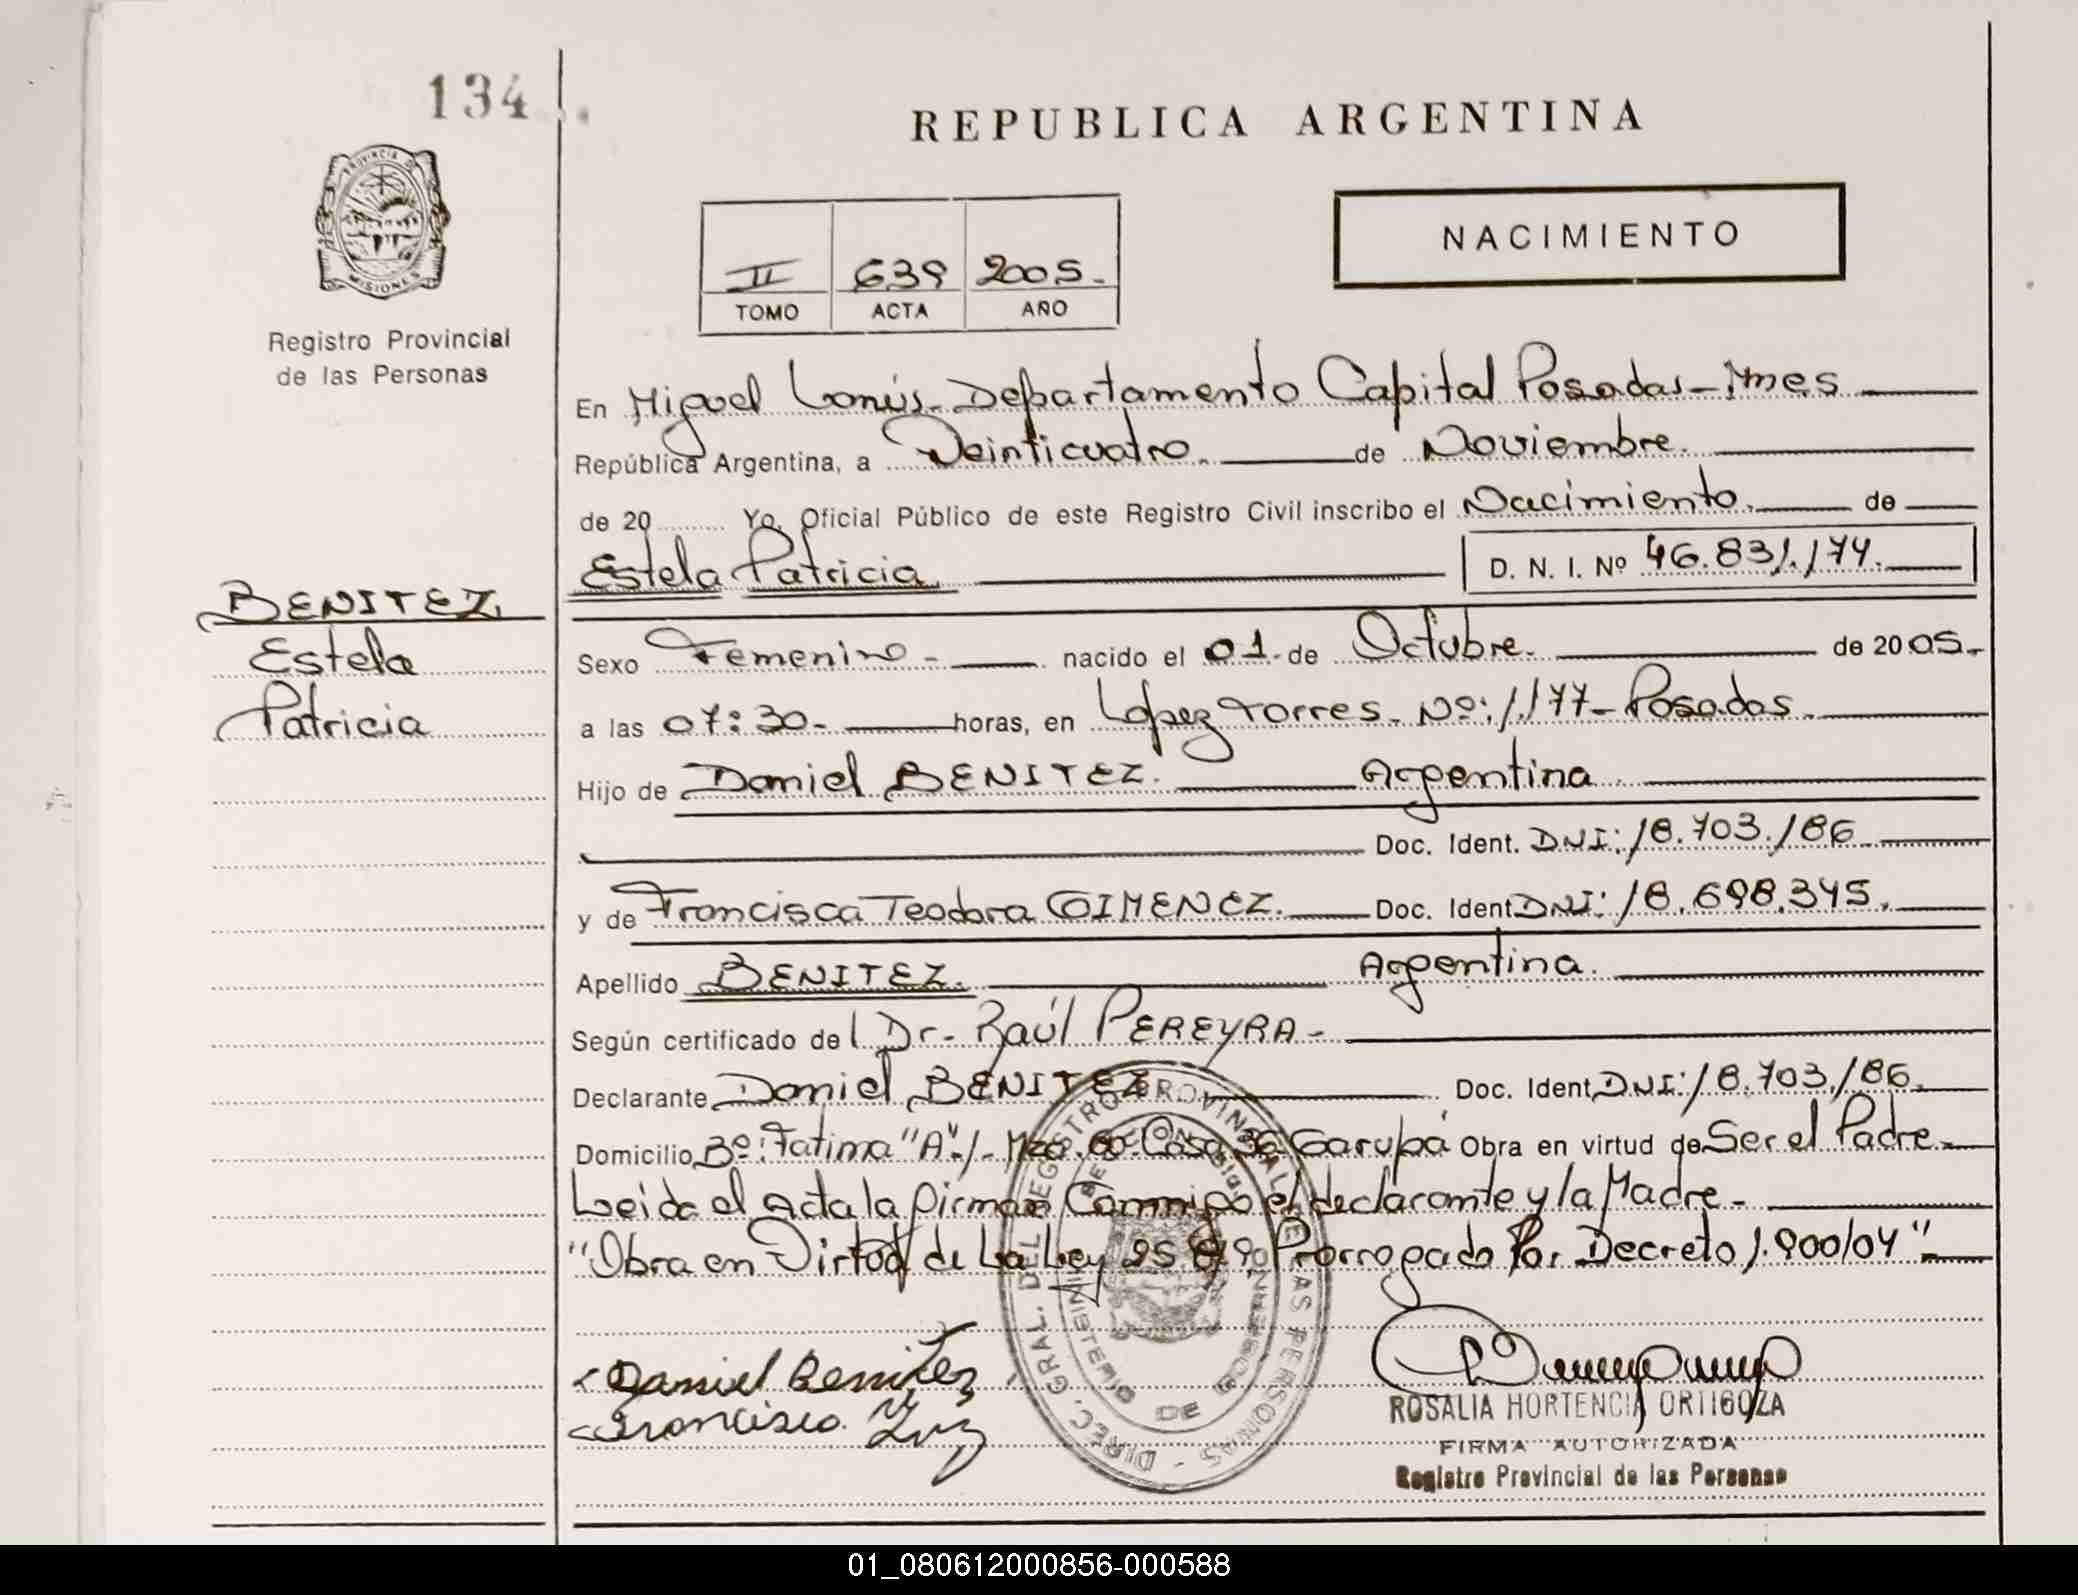 134
REPUBLICA ARGENTINA
PROVINCIA DE
MISIONES
Registro Provincial
de las Personas
II 639 2005.
TOMO ACTA AÑO
NACIMIENTO
En Miguel Lanús. Departamento Capital Posadas - Mnes
República Argentina, a Veinticuatro. de Noviembre.
de 20 Yo, Oficial Público de este Registro Civil inscribo el Nacimiento. de
Estela Patricia D. N. I. Nº 46.831.174.
BENITEZ
Estela
Patricia
Sexo Femenino - nacido el 01 de Octubre. de 2005.
a las 07:30 - horas, en López Torres. Nº: 1.177 - Posadas.
Hijo de Daniel BENITEZ. Argentina
Doc. Ident. DNI: 18.703.186
y de Francisca Teodora GIMENEZ. Doc. Ident DNI: 18.698.345.
Apellido BENITEZ. Argentina.
Según certificado del Dr. Raúl PEREYRA -
Declarante Daniel BENITEZ Doc. Ident. DNI: 18.703.186.
Domicilio Bº: Fatima "A"./- Mza. Casa 36 Garupá Obra en virtud de Ser el Padre -
Leida el Acta la firman Conmigo el declarante y la Madre -
"Obra en Virtud de La Ley 25.819 Prorrogado Por Decreto 1.900/04" -
DIREC. GRAL. DEL REGISTRO PROVINCIAL DE LAS PERSONAS -
MINISTERIO DE
Daniel Benitez
ROSALIA HORTENCIA ORTIGOZA
FIRMA AUTORIZADA
Registro Provincial de las Personas
01_080612000856-000588